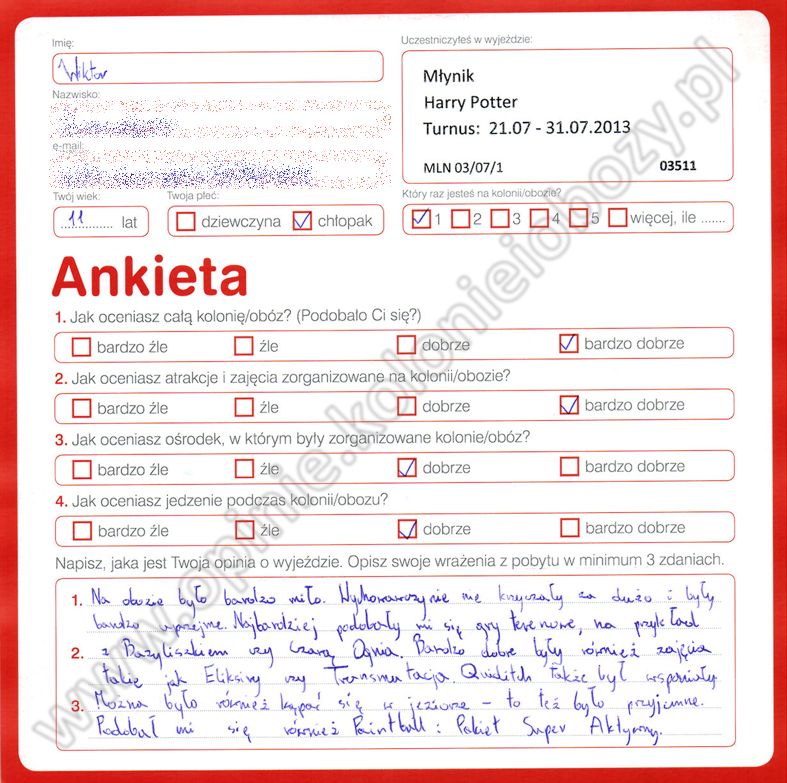 Imię:
Wiktor
Nazwisko:
e-mail:
Twój wiek:
11 lat
Twoja płeć:
dziewczyna chłopak
Uczestniczyłeś w wyjeździe:
Młynik
Harry Potter
Turnus: 21.07 - 31.07.2013
MLN 03/07/1 03511
Który raz jesteś na kolonii/obozie?
1 2 3 4 5 więcej, ile ......
Ankieta
1. Jak oceniasz całą kolonię/obóz? (Podobało Ci się?)
bardzo źle źle dobrze bardzo dobrze
2. Jak oceniasz atrakcje i zajęcia zorganizowane na kolonii/obozie?
bardzo źle źle dobrze bardzo dobrze
3. Jak oceniasz ośrodek, w którym były zorganizowane kolonie/obóz?
bardzo źle źle dobrze bardzo dobrze
4. Jak oceniasz jedzenie podczas kolonii/obozu?
bardzo źle źle dobrze bardzo dobrze
Napisz, jaka jest Twoja opinia o wyjeździe. Opisz swoje wrażenia z pobytu w minimum 3 zdaniach.
1. Na obozie było bardzo miło. Wychowawczynie nie krzyczały za dużo i były
bardzo uprzejme. Najbardziej podobały mi się gry terenowe, na przykład
2. z Bazyliszkiem czy Czarą Ognia. Bardzo dobre były również zajęcia
takie jak Eliksiry czy Transmutacja. Quiditch także był wspaniały.
3. Można było również kąpać się w jeziorze - to też było przyjemne.
Podobał mi się również Paintball i Pakiet Super Aktywny.
www.opinie.kolonieiobozy.pl